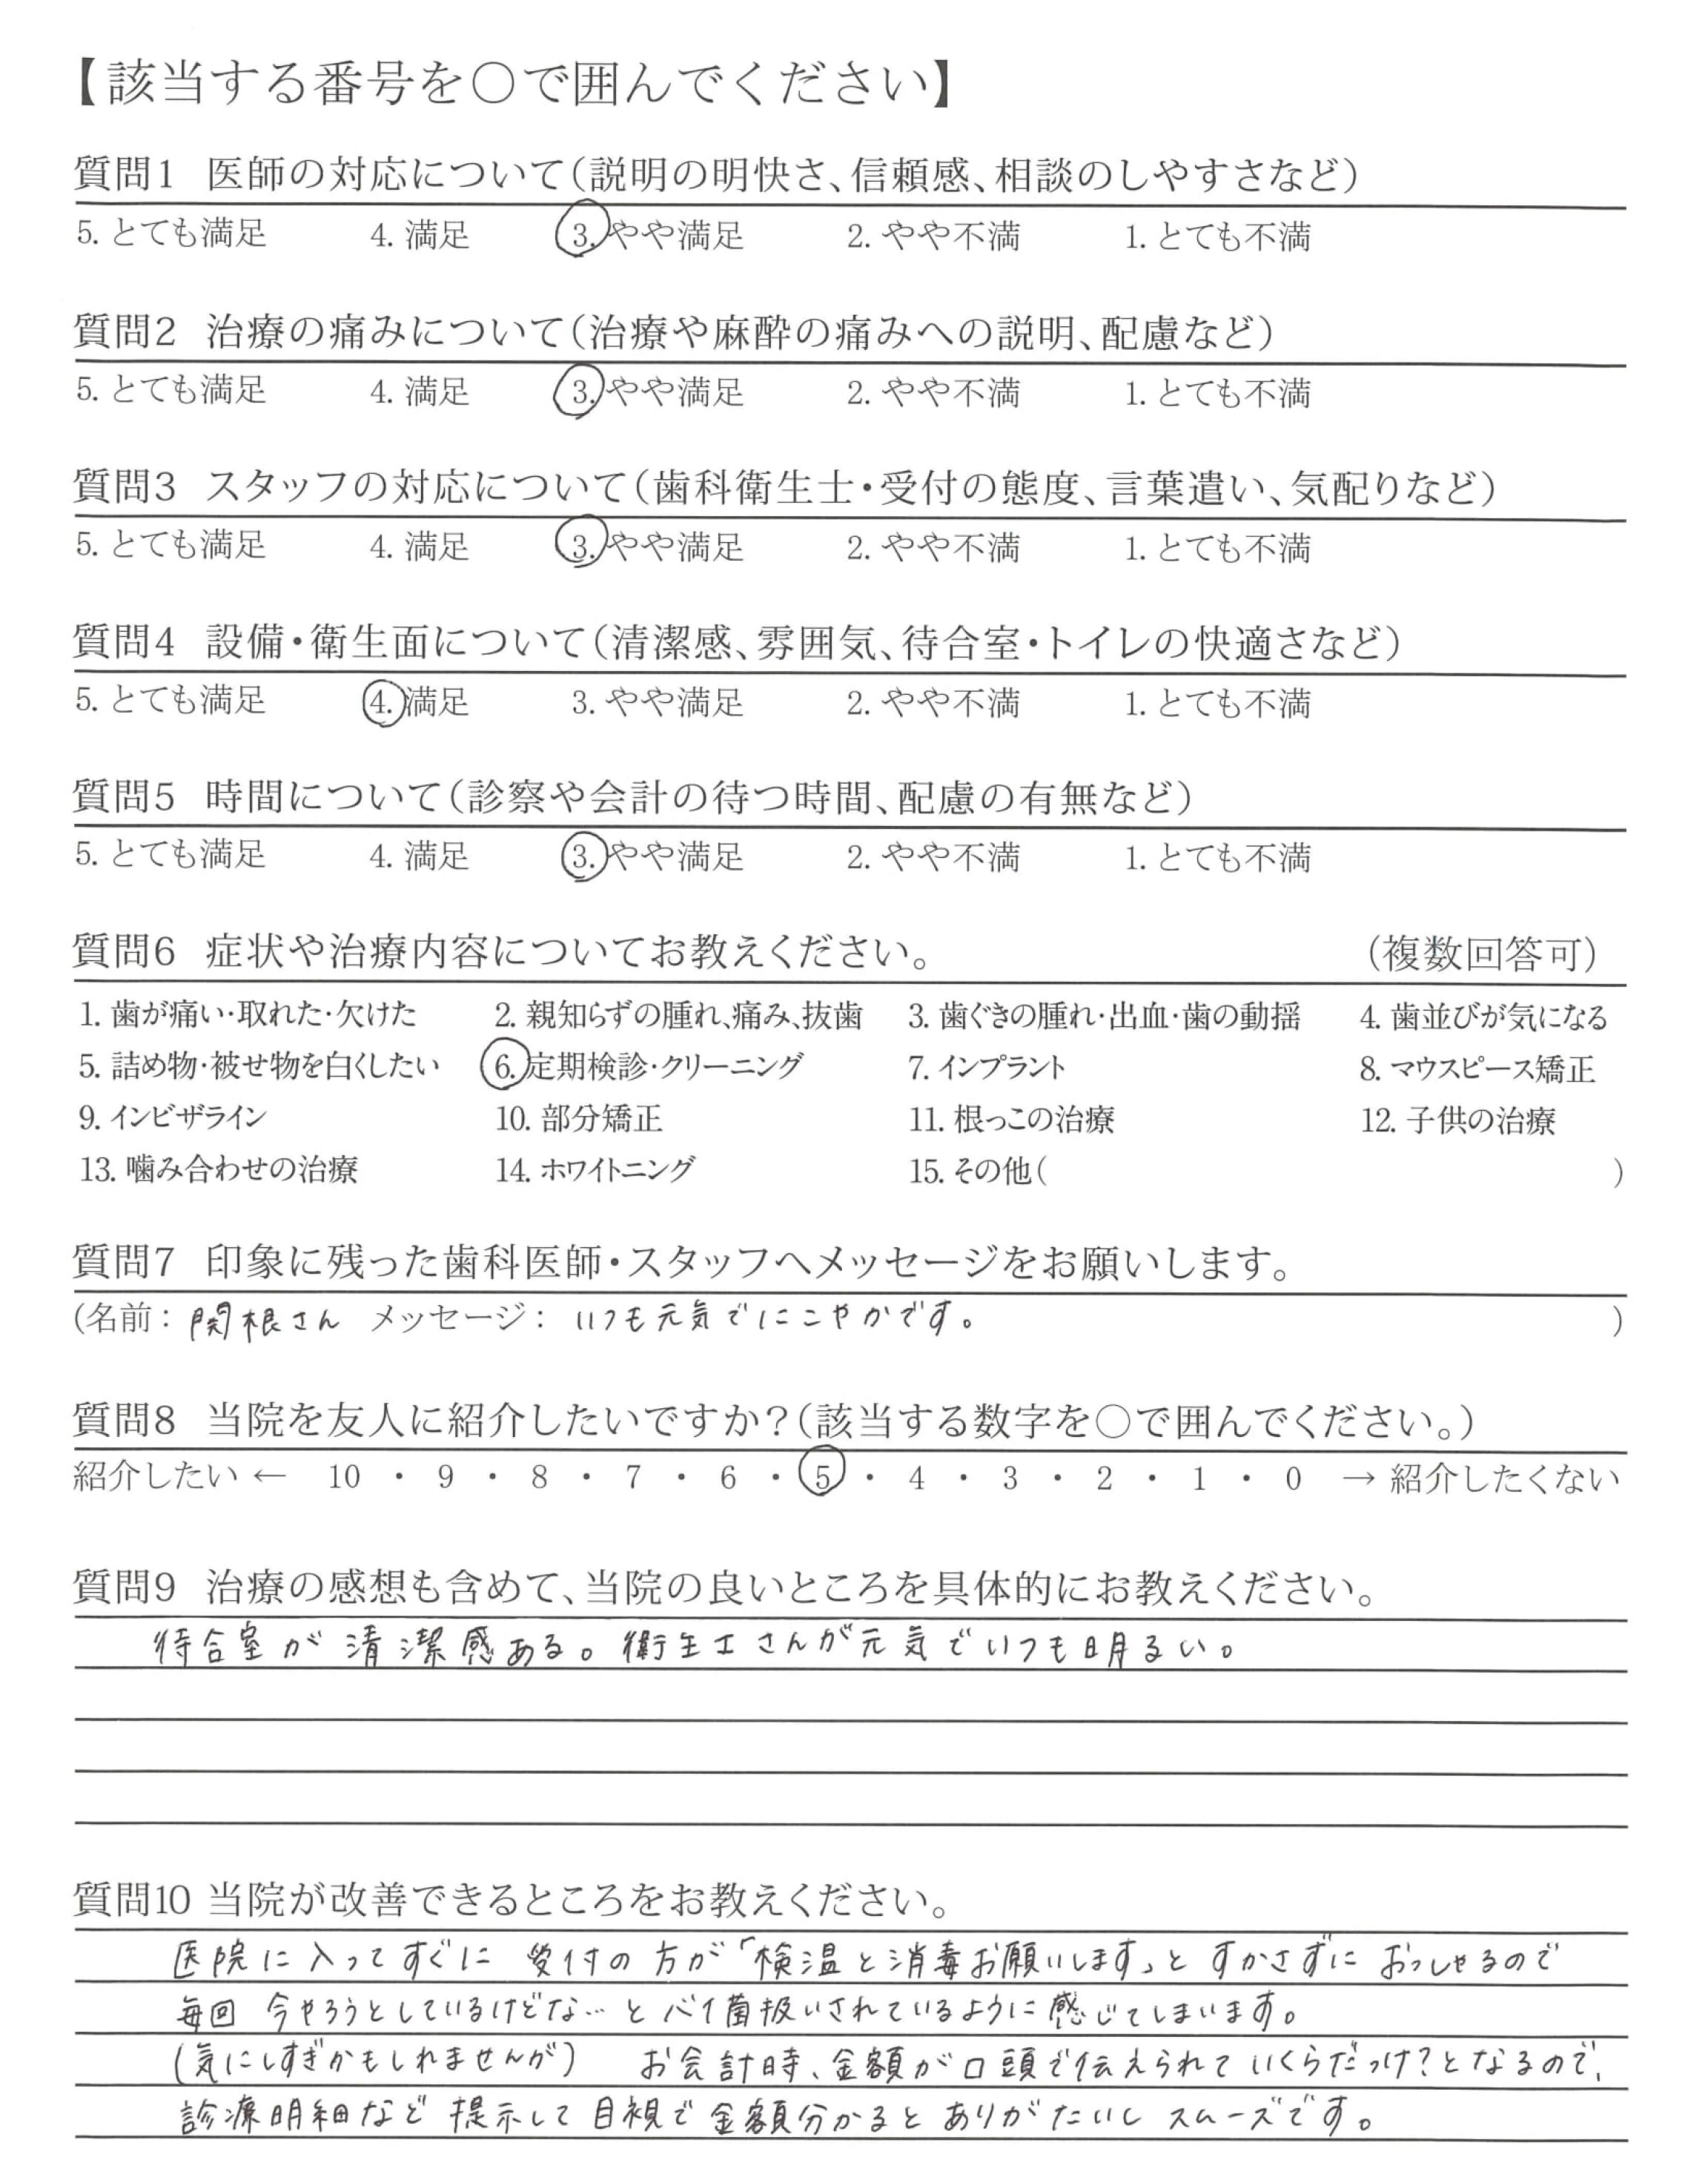 【該当する番号を○で囲んでください】
質問1 医師の対応について(説明の明快さ、信頼感、相談のしやすさなど)
5. とても満足 4. 満足 3. やや満足 2. やや不満 1. とても不満
質問2 治療の痛みについて(治療や麻酔の痛みへの説明、配慮など)
5. とても満足 4. 満足 3. やや満足 2. やや不満 1. とても不満
質問3 スタッフの対応について(歯科衛生士・受付の態度、言葉遣い、気配りなど)
5. とても満足 4. 満足 3. やや満足 2. やや不満 1. とても不満
質問4 設備・衛生面について(清潔感、雰囲気、待合室・トイレの快適さなど)
5. とても満足 4. 満足 3. やや満足 2. やや不満 1. とても不満
質問5 時間について(診察や会計の待つ時間、配慮の有無など)
5. とても満足 4. 満足 3. やや満足 2. やや不満 1. とても不満
質問6 症状や治療内容についてお教えください。 (複数回答可)
1. 歯が痛い・取れた・欠けた 2. 親知らずの腫れ、痛み、抜歯 3. 歯ぐきの腫れ・出血・歯の動揺 4. 歯並びが気になる
5. 詰め物・被せ物を白くしたい 6. 定期検診・クリーニング 7. インプラント 8. マウスピース矯正
9. インビザライン 10. 部分矯正 11. 根っこの治療 12. 子供の治療
13. 噛み合わせの治療 14. ホワイトニング 15. その他( )
質問7 印象に残った歯科医師・スタッフへメッセージをお願いします。
(名前: 関根さん メッセージ: いつも元気でにこやかです。 )
質問8 当院を友人に紹介したいですか?(該当する数字を○で囲んでください。)
紹介したい ← 10 ・ 9 ・ 8 ・ 7 ・ 6 ・ 5 ・ 4 ・ 3 ・ 2 ・ 1 ・ 0 → 紹介したくない
質問9 治療の感想も含めて、当院の良いところを具体的にお教えください。
待合室が清潔感ある。衛生士さんが元気でいつも明るい。
質問10 当院が改善できるところをお教えください。
医院に入ってすぐに 受付の方が「検温と消毒お願いします」と すかさずに おっしゃるので
毎回 今やろうとしているけどな… と バイ菌扱いされているように感じてしまいます。
(気にしすぎかもしれませんが) お会計時、金額が口頭で伝えられて いくらだっけ?となるので、
診療明細など 提示して 目視で 金額分かると ありがたいし スムーズです。